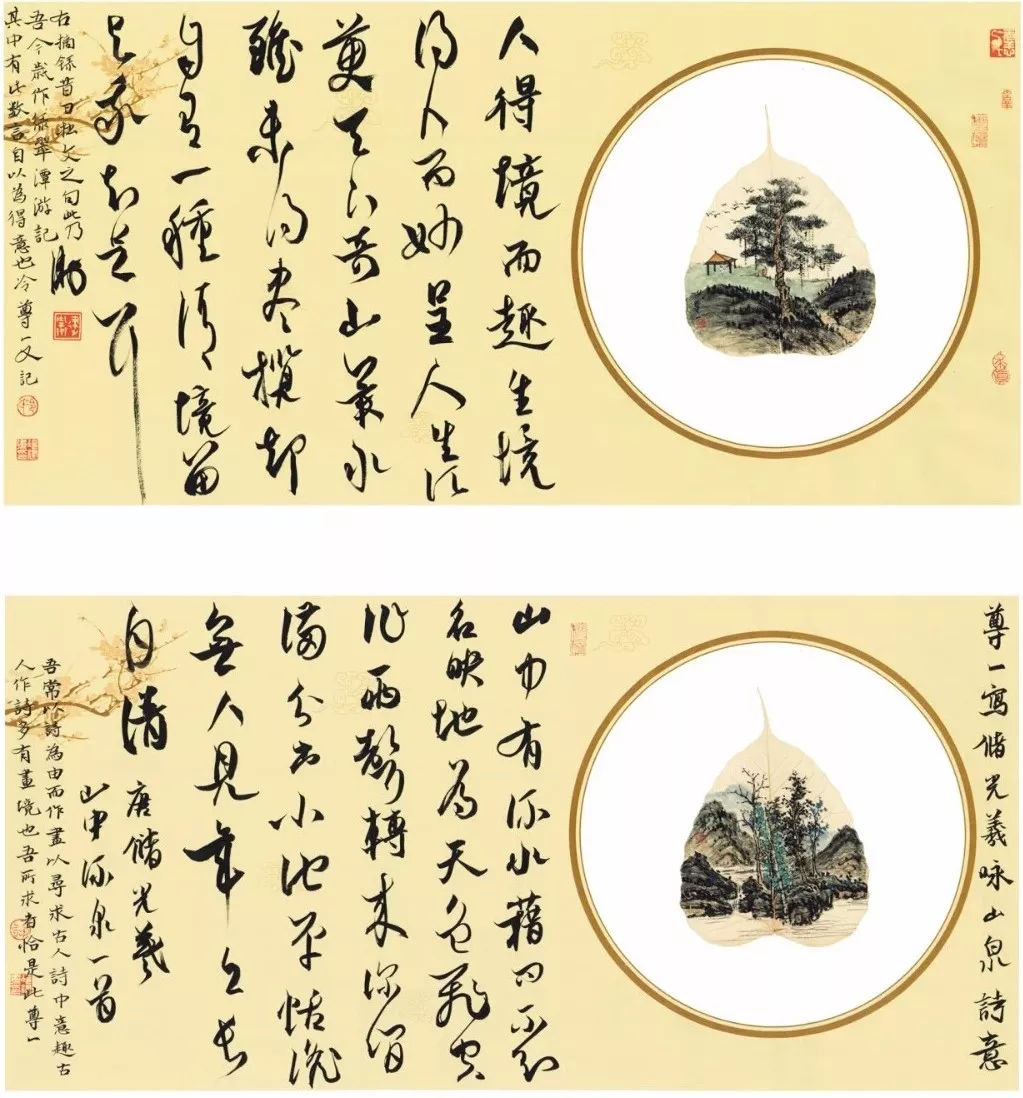 人得境而趣生境
得人而妙呈人生
天下奇山水
雖未得盡攬却
自有一種清境留
我知足
右摘錄昔日拙文之句此乃
吾今歲作綠翠潭游記
其中有此數言自以為得意也冷尊一又記
尊一寫儲光羲咏山泉詩意
山中有流水藉問不知
名映地為天色飛空
作雨聲轉來深澗
滿分出小池平恬澹
無人見年年長
自清 唐儲光羲
山中流泉一首
吾常以詩為由而作畫以尋求古人詩中意趣古
人作詩多有畫境也吾所求者恰是此尊一